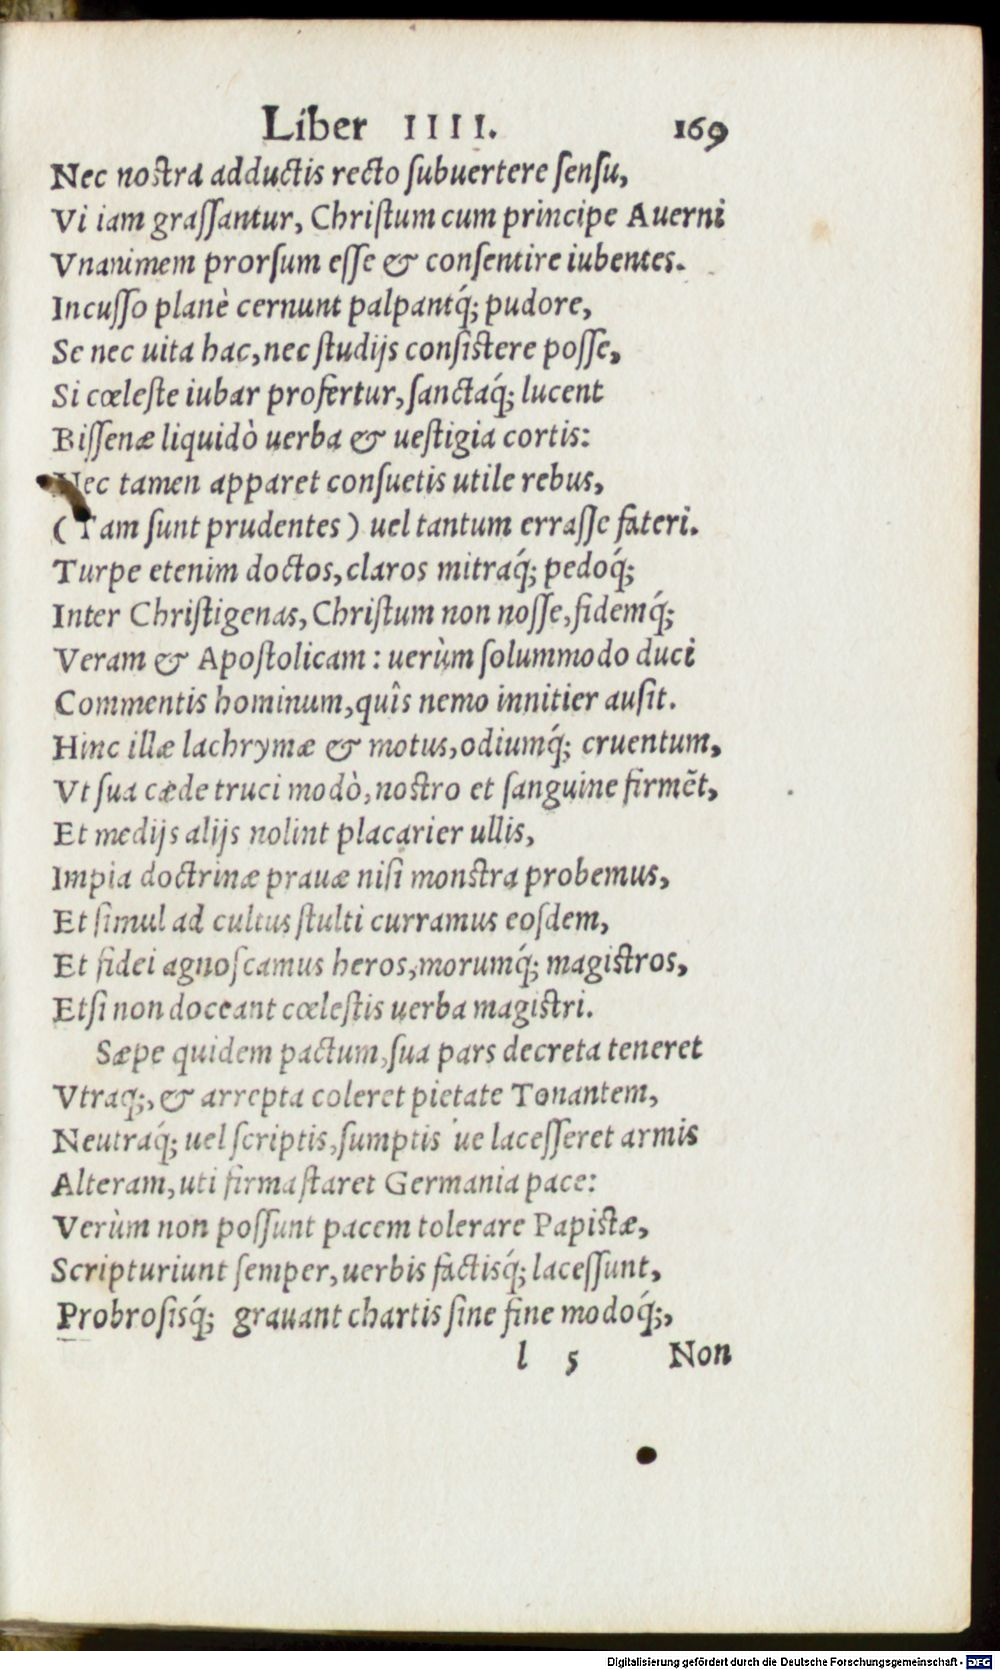 Liber IIII. 169
Nec nostra adductis recto ſubuertere ſenſu,
Vi iam graſſantur, Chriſtum cum principe Auerni
Vnanimem prorſum eſſe & conſentire iubentes.
Incuſſo planè cernunt palpantq́; pudore,
Se nec uita hac, nec ſtudijs conſistere poſſe,
Si cœleſte iubar profertur, ſanctaq́; lucent
Biſſenæ liquidò uerba & ueſtigia cortis:
Nec tamen apparet conſuetis utile rebus,
(Tam ſunt prudentes) uel tantum erraſſe fateri.
Turpe etenim doctos, claros mitraq́; pedoq́;
Inter Chriſtigenas, Chriſtum non noſſe, fidemq́;
Veram & Apoſtolicam: uerùm ſolummodo duci
Commentis hominum, quîs nemo innitier auſit.
Hinc illæ lachrymæ & motus, odiumq́; cruentum,
Vt ſua cæde truci modò, nostro et ſanguine firmẽt,
Et medijs alijs nolint placarier ullis,
Impia doctrinæ prauæ niſi monstra probemus,
Et ſimul ad cultus ſtulti curramus eoſdem,
Et fidei agnoſcamus heros, morumq́; magistros,
Etſi non doceant cœleſtis uerba magistri.
Sæpe quidem pactum, ſua pars decreta teneret
Vtraq;, & arrepta coleret pietate Tonantem,
Neutraq́; uel ſcriptis, ſumptis 've laceſſeret armis
Alteram, uti firma ſtaret Germania pace:
Verùm non poſſunt pacem tolerare Papistæ,
Scripturiunt ſemper, uerbis factisq́; laceſſunt,
Probroſisq́; grauant chartis ſine fine modoq́;,
l 5 Non
Digitalisierung gefördert durch die Deutsche Forschungsgemeinschaft - DFG